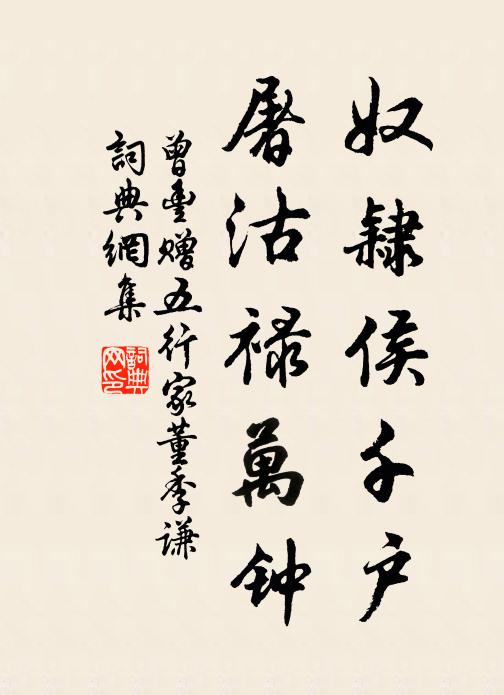 奴隸侯千户
屠沽禄萬钟
曾豊贈五行家董季謙
詞典網集
詞典网印